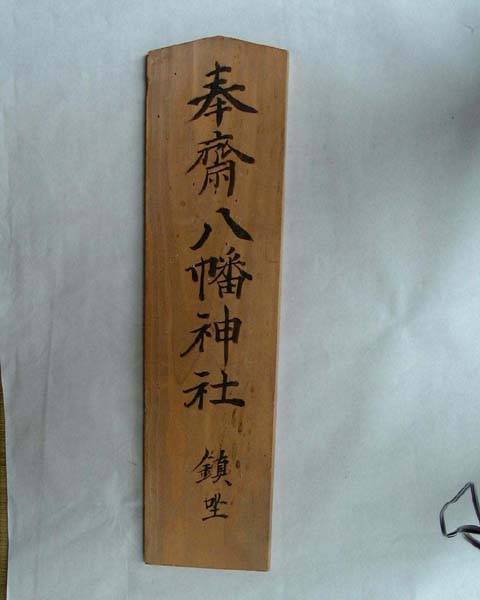 奉齋八幡神社
鎮坐